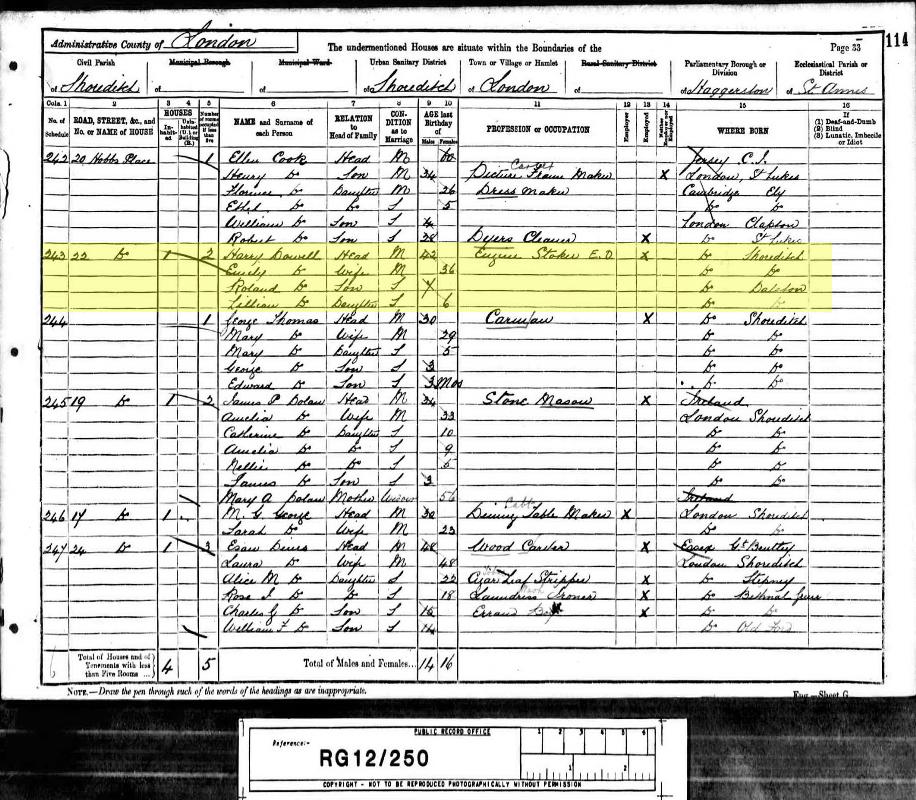 Administrative County of London
The undermentioned Houses are situate within the Boundaries of the
Page 33
114
Civil Parish
of Shoreditch
Municipal Borough
of
Municipal Ward
of
Urban Sanitary District
of Shoreditch
Town or Village or Hamlet
of London
Rural Sanitary District
of
Parliamentary Borough or Division
of Haggerston
Ecclesiastical Parish or District
of St Annes
Cols. 1 2 3 4 5 6 7 8 9 10 11 12 13 14 15 16
No. of Schedule
ROAD, STREET, &c., and No. or NAME of HOUSE
HOUSES
NAME and Surname of each Person
RELATION to Head of Family
CONDITION as to Marriage
AGE last Birthday of
Males Females
PROFESSION or OCCUPATION
Employer
Employed
WHERE BORN
If (1) Deaf-and-Dumb (2) Blind (3) Lunatic, Imbecile or Idiot
242 20 Hobbs Place 1 Ellen Cook Head M 60 Jersey C.I.
Henry Do Son M 34 Picture Frame Maker X London, St Lukes
Florence Do Daughter M 26 Dress Maker Cambridge Ely
Ethel Do Do S 5 Do Do
William Do Son S 4 London Clapton
Robert Do Son S 28 Dyers Cleaner X Do St Lukes
243 22 Do 1 2 Harry Dowell Head M 42 Engine Stoker E.D X Do Shoreditch
Emily Do Wife M 36 Do Do
Roland Do Son S Do Dalston
Lillian Do Daughter S 6 Do Do
244 1 George Thomas Head M 30 Carman X Do Shoreditch
Mary Do Wife M 29 Do Do
Mary Do Daughter S 5 Do Do
George Do Son S 3 Do Do
Edward Do Son S 3 Mos Do Do
245 19 Do 1 2 James P Dolan Head M 34 Stone Mason X Ireland
Amelia Do Wife M 33 London Shoreditch
Catherine Do Daughter S 10 Do Do
Amelia Do Do S 9 Do Do
Nellie Do Do S 5 Do Do
James Do Son S 3 Do Do
Mary A Dolan Mother Widow 56 Ireland
246 17 Do 1 M. G. George Head M 30 Dining Table Maker X London Shoreditch
Sarah Do Wife M 23 Do Do
247 24 Do 1 3 Esau Head M 48 Wood Carver X Essex Gt Bentley
Laura Do Wife M 48 London Shoreditch
Alice M Do Daughter S 22 Cigar Leaf Stripper X Do Stepney
Rose I Do Do S 18 Laundress Ironer X Do Bethnal Green
Charles G Do Son S 15 Errand Boy X Do Do
William F Do Son S 14 Do Old Ford
6 Total of Houses and of Tenements with less than Five Rooms ... 4 5 Total of Males and Females... 14 16
NOTE.—Draw the pen through such of the words of the headings as are inappropriate.
Eng.—Sheet G.
PUBLIC RECORD OFFICE
1 2 3 4 5 6
Reference:-
RG12/250
1 2
COPYRIGHT - NOT TO BE REPRODUCED PHOTOGRAPHICALLY WITHOUT PERMISSION